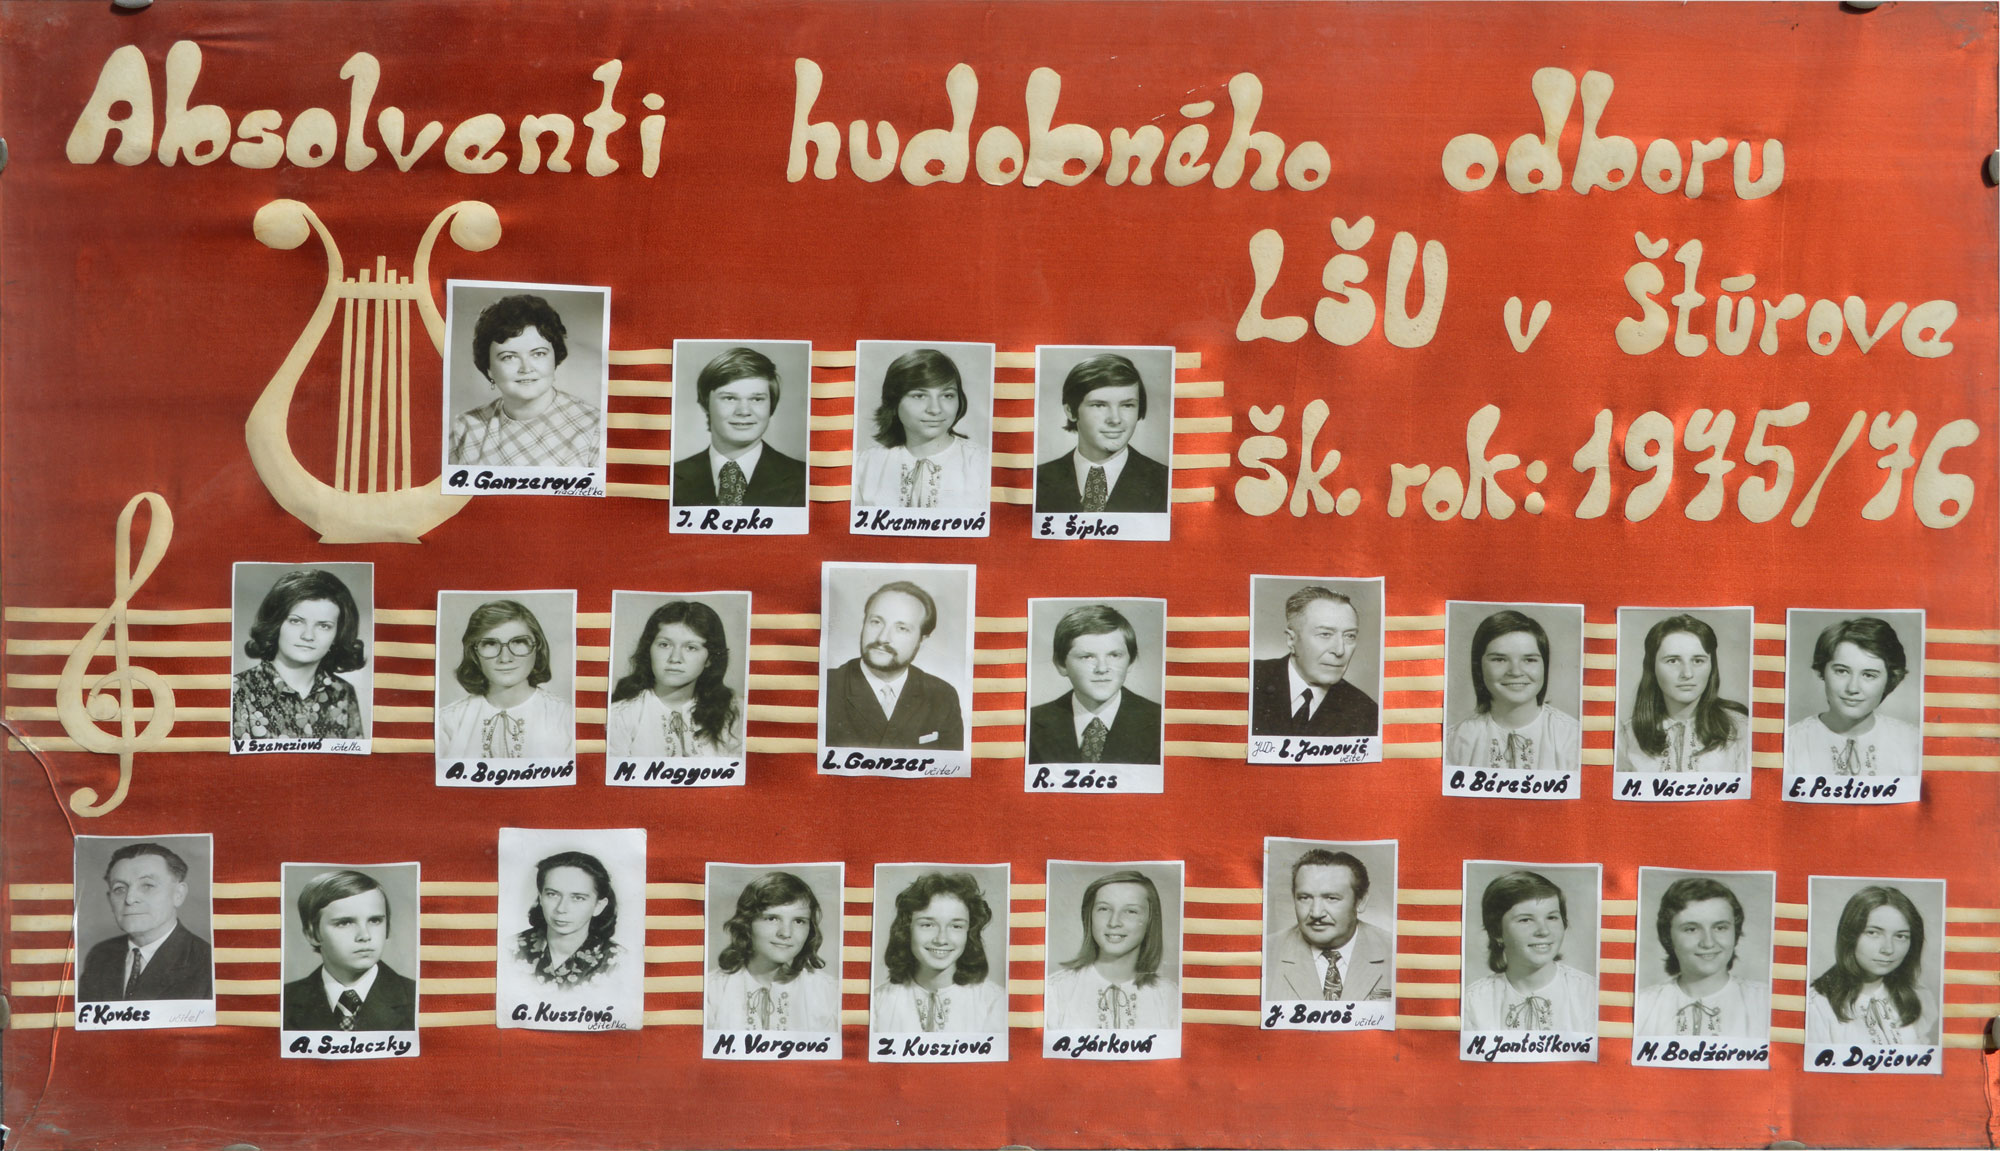 Absolventi hudobného odboru
LŠU v Štúrove
šk. rok: 1975/76
A. Ganzerová riaditeľka
I. Repka
I. Kremmerová
Š. Šipka
V. Szencziová učiteľka
A. Bognárová
M. Nagyová
L. Ganzer učiteľ
R. Zács
JUDr. L. Janovič učiteľ
O. Bérešová
M. Vácziová
E. Pastiová
F. Kovács učiteľ
A. Szeleczky
G. Kusziová učiteľka
M. Vargová
Z. Kusziová
A. Járková
J. Baroš učiteľ
M. Jantošíková
M. Bodžárová
A. Dajčová